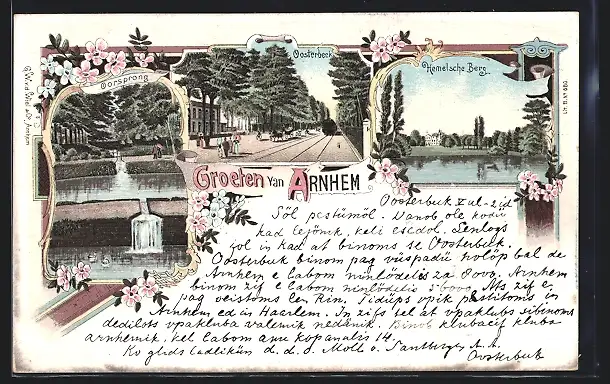 Dorsprong
Oosterbeek
Hemelsche Berg
Groeten van ARNHEM
Oosterbuk
Söl pestümöl. Danob ole kodü
kad lejönik, keli esedol. Lenlogs
jol in kad at binoms se Oosterbuk.
Oosterbuk binom pag vüspadü holöp bal de
Arnhem e labom ninlödelis za 8000. Arnhem
binom zif e labom ninlödelis zif e
pag len Rin. Tidüps vpik pestitoms in
Arnhem, ed in Haarlem. In zifs tel at vpaklubs sibinoms
dedilots vpakluba valemik nedänik. Binob klubacif kluba
arnhemik, kel labom anu kopanalis 14.
Ko glids ladlikün d. d. d. Moll v.
Oosterbuk